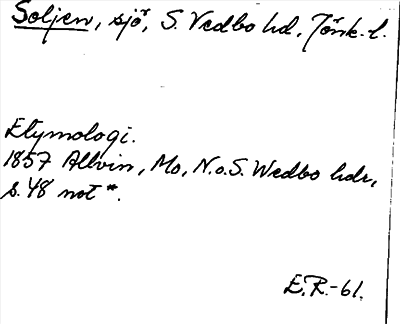 Soljen, sjö, S. Vedbo hd, Jönk. l.
Etymologi.
1857 Allvin, Mo, N.o.S. Wedbo hdr,
s. 48 not *.
E.R.-61.